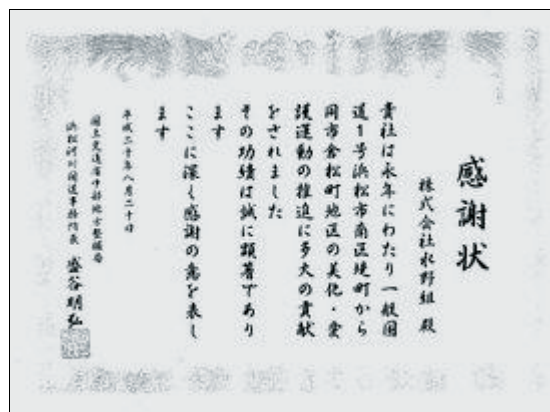 感謝状
株式会社水野組 殿
貴社は永年にわたり一般国
道1号浜松市南区堤町から
同市倉松町地区の美化・愛
護運動の推進に多大の貢献
をされました
その功績は誠に顕著であり
ます
ここに深く感謝の意を表し
ます
平成二十年八月二十日
国土交通省中部地方整備局
浜松河川国道事務所長 盛谷明弘